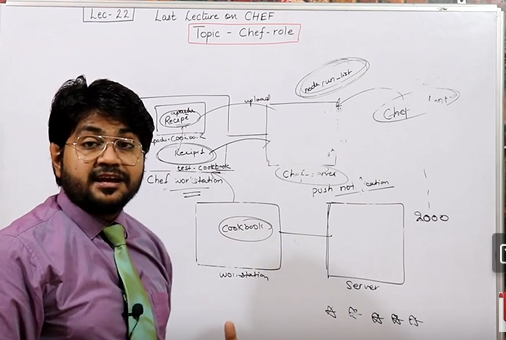 Lec-22 Last Lecture on CHEF
Topic - Chef-role
node/run-list
upload
Recipe
Chef
Recipe
test-cookbook
Chef workstation
push notification
2000
Cookbook
workstation
server